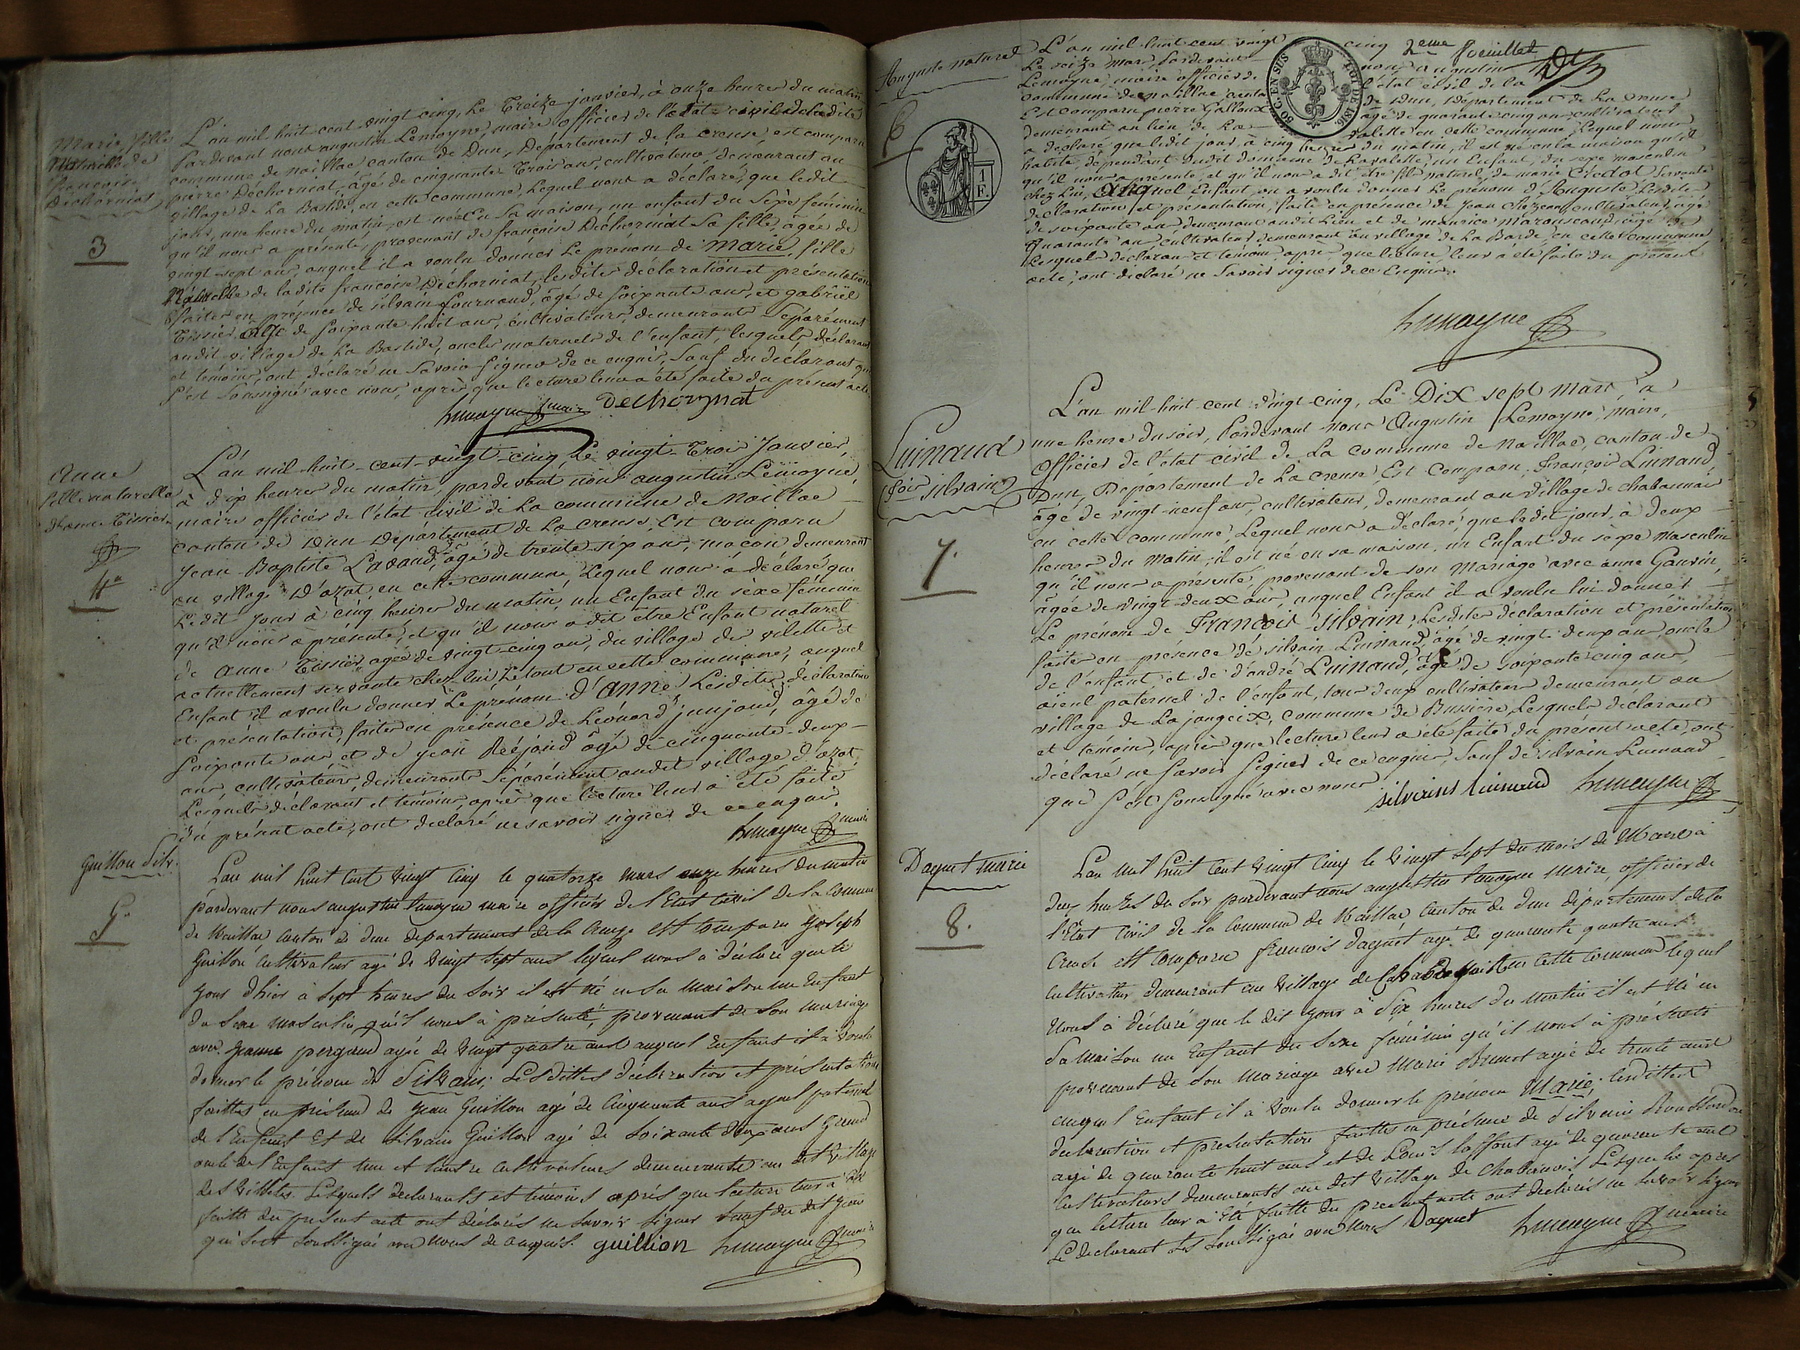 Marie fille
naturelle de
françoise
Déchorniat
3
L'an mil huit cent vingt cinq, le treize janvier, à onze heures du matin
pardevant nous augustin Lemoyne, maire officier de l'état civil de la dite
commune de naillac, canton de Dun, Département de la creuse est comparu
pierre Déchorniat, âgé de cinquante trois ans, cultivateur, demeurant au
village de La Bastide, en cette commune, lequel nous a déclaré, que ledit
jour, une heure du matin, est née en sa maison, un enfant du sèxe féminin
qu'il nous a présenté, provenant de françoise Déchorniat sa fille, âgée de
vingt sept ans, auquel il a voulu donner le prénom de marie, fille
Naturelle de ladite francoise Déchorniat, lesdites déclaration et présentation
faites en présence de silvain fournaud, âgé de soixante ans, et gabriël
Tissier âgé de soixante huit ans, cultivateurs, demeurants séparément
audit village de La Bastide, oncles maternels de l'enfant, lesquels déclarant
et témoins, ont déclaré ne savoir signer de ce enquis, sauf du déclarant qui
s'est soussigné avec nous, après que lecture leur a été faite du présent acte.
Lemoyne maire Dechorgnat
anne
fille naturelle
d'anne Tissier
4e
L'an mil-huit-cent-vingt-cinq, le vingt-trois janvier,
à dix heures du matin pardevant nous augustin Lemoyne,
maire officier de l'état civil de la commune de Naillac
canton de Dun Département de La creuse, Est comparu
Jean-Baptiste Lavaud, âgé de trente six ans, maçon demeurant
au village D'azat, en cette commune, Lequel nous a déclaré que
Le dit jour à cinq heures du matin, un Enfant du sèxe féminin
qu'il nous a présenté, et qu'il nous a dit être Enfant naturel
de anne Tissier, agée de vingt-cinq ans, du village de vilette et
actuellement servante chez lui, Le tout en cette commune, auquel
Enfant il a voulu donner Le prénom d'anne, Lesdites déclaration
et présentation, faites en présence de Léonard junjaud, âgé de
soixante ans et de jean âgé de cinquante-deux-
ans, cultivateurs, demeurants séparément audit village d'azat,
Lesquels déclarant et témoins, après que lecture leur a été faite
du présent acte, ont déclaré ne savoir signer de ce enquis.
Lemoyne maire
Guillon Silv.
5e
L'an mil huit Cent vingt Cinq le quatorze mars onze heures du matin
pardevant nous augustin Lemoyne maire officier de l'Etat Civil de la Commune
de Naillac Canton de dun département de la Creuze est Comparu Joseph
Guillon Cultivateur agé de vingt sept ans lequel nous à déclaré que le
jour d'hier à sept heures du soir il est né en sa maison un Enfant
du Sexe masculin qu'il nous à présenté, provenant de son mariage
avec Jeanne pergaud agée de vingt quatre ans auquel Enfant il à voulu
donner le prénom de Silvain, Lesdittes déclaration et présentation
faittes en présence de Jean Guillon agé de Cinquante ans ayeul paternel
de l'Enfant Et de silvain Guillon agé de soixante deux ans Grand
oncle de l'Enfant l'un et l'autre Cultivateurs demeurants au dit village
des Villettes. Lesquels déclarants et témoins après que lecture leur à été
faitte du présent acte ont déclarés ne savoir signer sauf du dit Jean
qui s'est soussigné avec nous de ce enquis. guillion Lemoyne maire
Auguste naturel
6
L'an mil-huit cent vingt cinq 2eme feuillet
Le seize mars pardevant nous augustin
Lemoyne, maire officier de l'état civil de la
commune de naillac canton de Dun, Département de La creuse
Est comparu pierre Galland âgé de quarante cinq ans cultivateur
demeurant au lieu de La valette en cette commune, Lequel nous
a déclaré que ledit jour, à cinq heures du matin, il est né en la maison qu'il
habite, dépendant dudit domaine de Lavalette, un Enfant, du sexe masculin
qu'il nous a présenté, et qu'il nous a dit être fils naturel, de marie Servante
chez lui, auquel Enfant on a voulu donner Le prénom d'Auguste Lesdites
déclaration et présentation, faite en présence de Jean cultivateur, âgé
de soixante ans demeurant audit Lieu et de maurice âgé de
quarante ans cultivateur demeurant au village de La Barde, en cette commune
Lesquels déclarant et témoins après que lecture leur a été faite du présent
acte, ont déclaré ne savoir signer de ce Enquis.
Lemoyne
BOUG. EN SUS LOI DE 1816
1 F.
Luinaud
(fois silvain)
7.
L'an mil-huit-cent-vingt-cinq, Le Dix sept mars à
une heure du soir, Pardevant nous Augustin Lemoyne, maire,
officier de l'état civil de La commune de Naillac, canton de
Dun, Département de La creuse, Est comparu, françois Luinaud,
âgé de vingt-neuf ans, cultivateur, demeurant au village de chabannes
en cette commune, Lequel nous a déclaré que ledit jour, à deux
heures du matin, il est né en sa maison, un Enfant du sèxe masculin
qu'il nous a présenté, provenant de son Mariage avec anne Gauvin
âgée de vingt-deux ans, auquel Enfant il a voulu lui donner
Le prénom de François silvain, Lesdites déclaration et présentation
faites en présence de silvain Luinaud, âgé de vingt-deux ans oncle
de l'enfant et de d'andré Luinaud, âgé de soixante-cinq ans,
aieul paternel de l'enfant, tous deux cultivateurs demeurant au
village de La jongeix, commune de Bussière, Lesquels déclarant
et témoins, après que lecture leur a été faite du présent acte, ont
déclaré ne savoir signer de ce enquis, Sauf de silvain Luinaud
qui s'est soussigné avec nous silveins Luinaud Lemoyne
Daguet marie
8.
L'an mil huit Cent vingt Cinq le vingt sept du mois de Mars à
deux heures du soir pardevant nous augustin Lemoyne maire, officier de
l'Etat Civil de la Commune de Naillac Canton de dun département de la
Creuse est Comparu francois daguet agé de quarante quatre ans
Cultivateur demeurant au village de en Cette Commune lequel
nous à déclaré que le dit jour à six heures du matin il est né en
sa maison un Enfant du sexe féminin qu'il nous à présenté
provenant de son mariage avec Marie Brunot agée de trente ans
auquel Enfant il à voulu donner le prénom Marie, lesdittes
déclaration et présentation faittes en présence de silvain
agé de quarante huit ans et de Louis laffont agé de quarante ans
Cultivateurs demeurants au dit village de Chabannes, Lesquels après
que lecture leur à été faitte du présent acte ont déclarés ne savoir signer
Le déclarant s'est soussigné avec nous Daguet Lemoyne maire